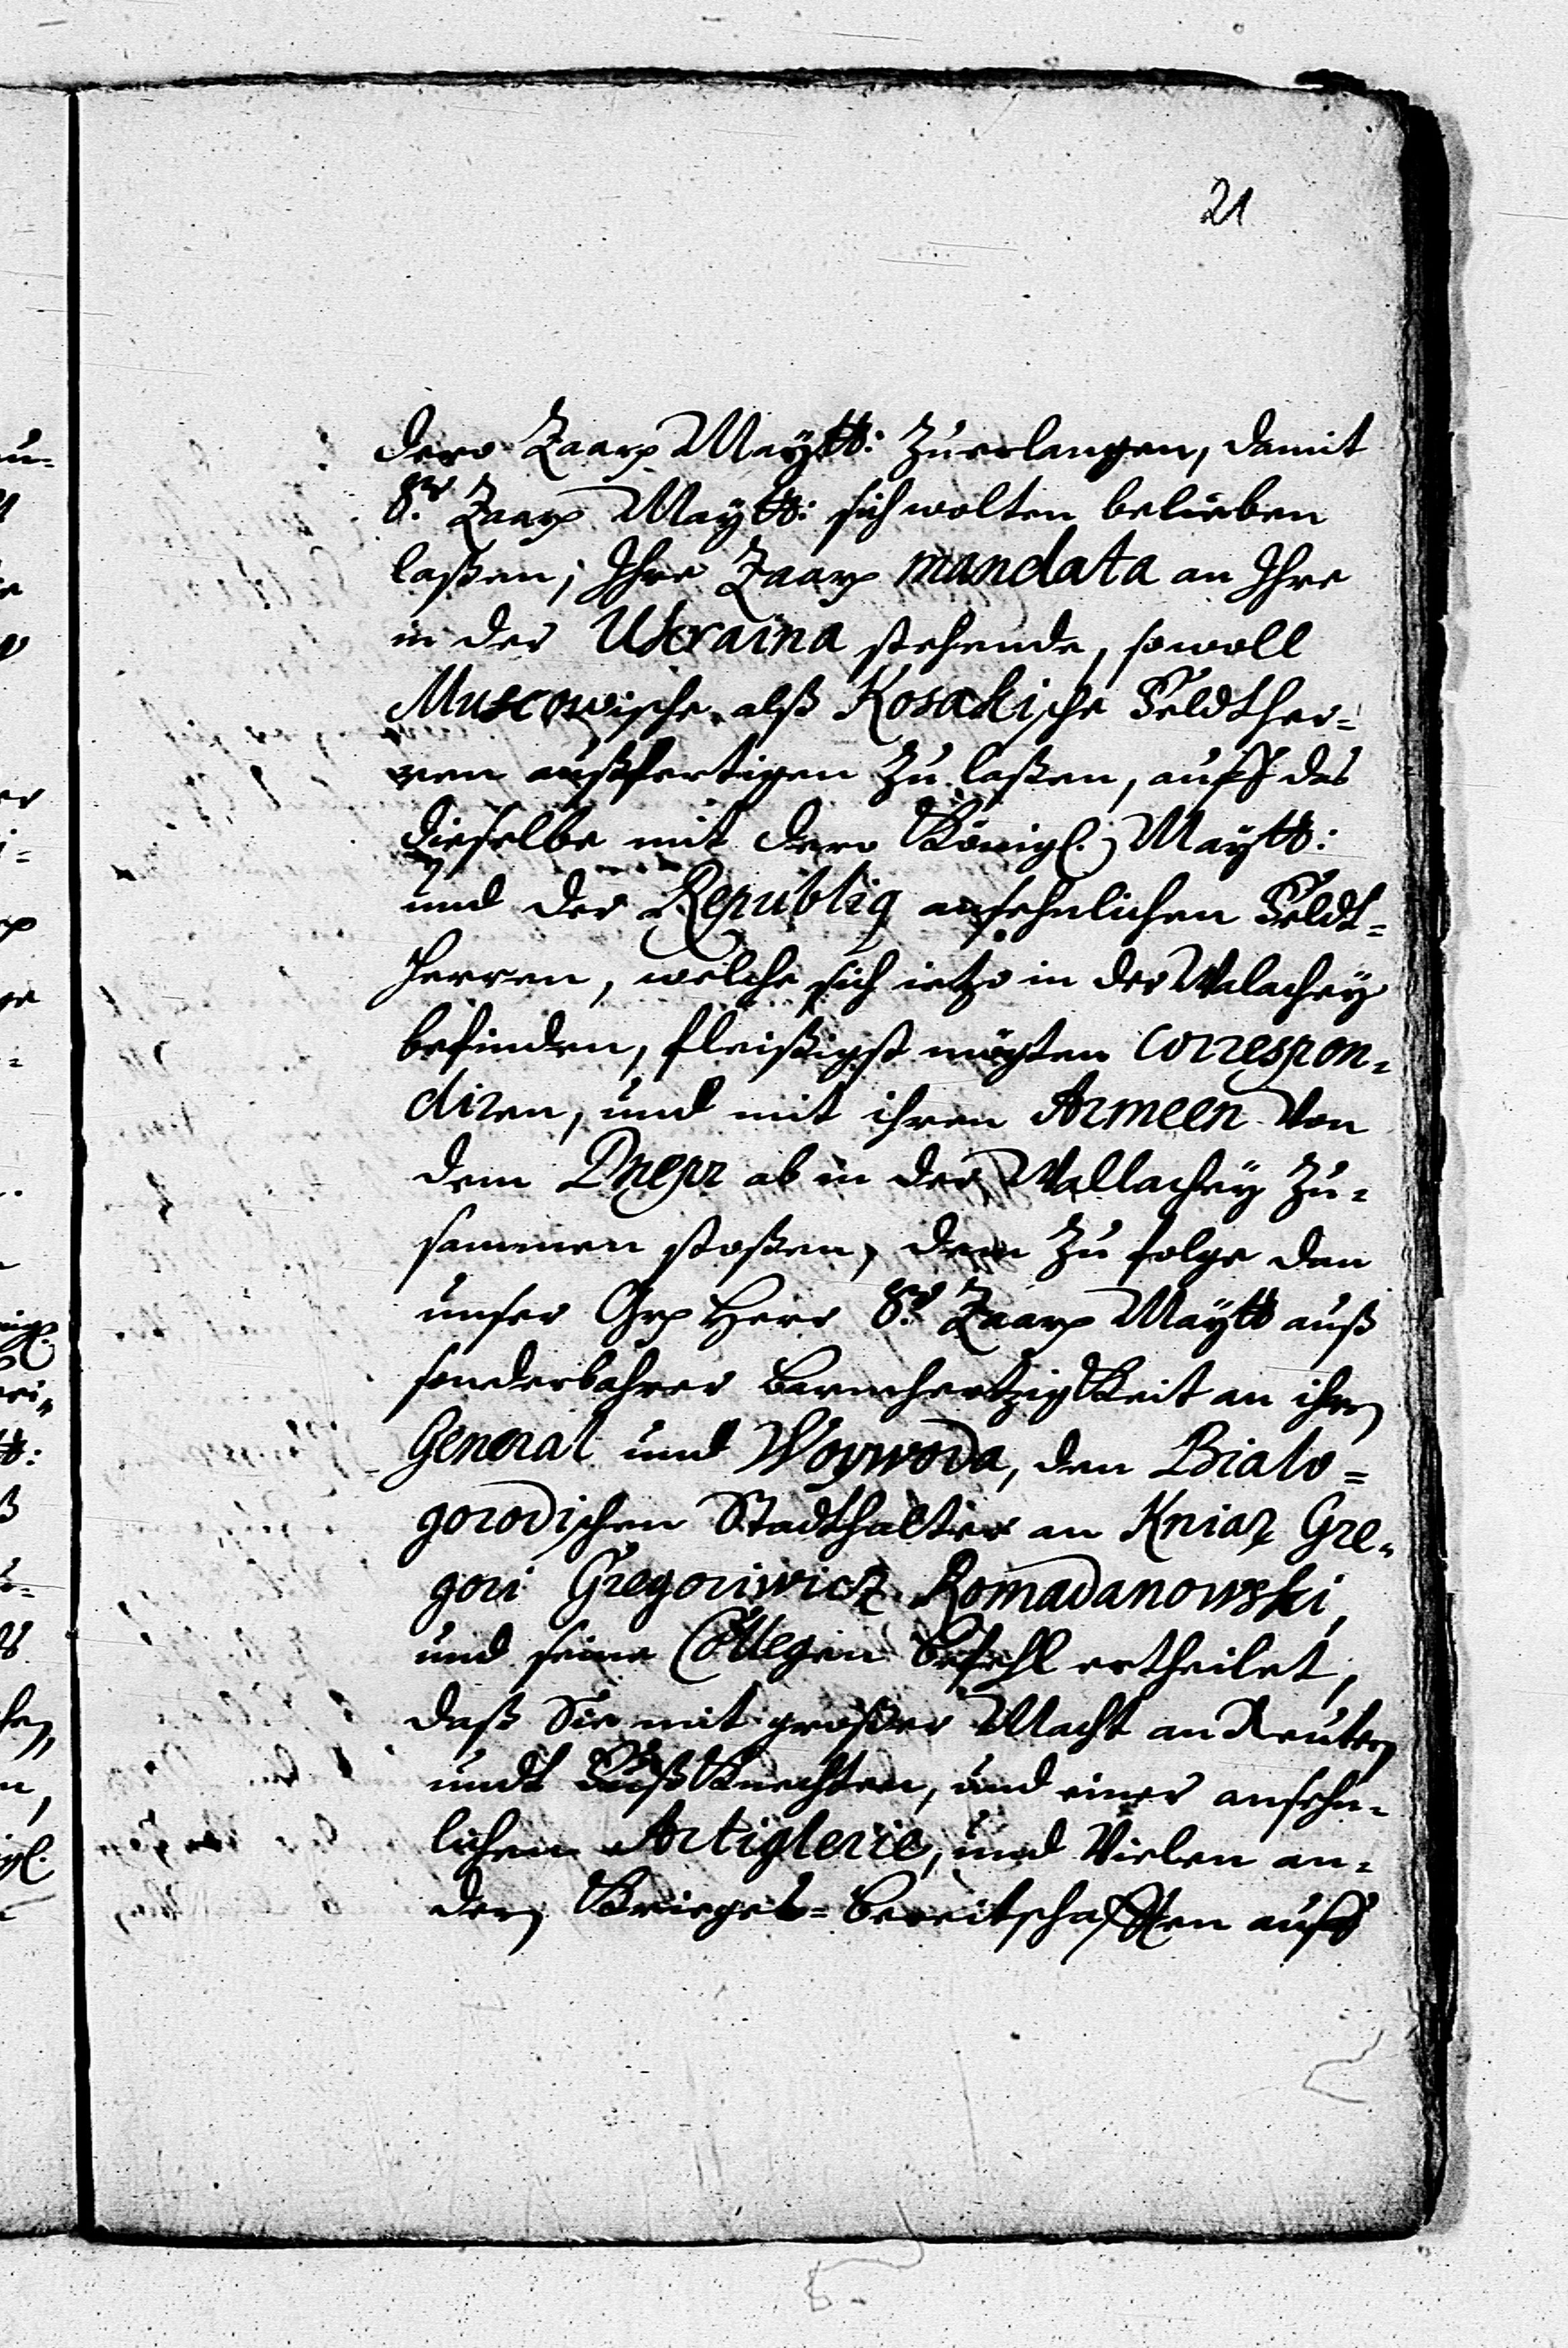 21
dero Zaarn Maÿtt: zuerlangen, damit
Sr. Zaarn Maÿtt: sich wolten belieben
laßen, Ihre Zaarn mandata an Ihre
in der Ukraina stehende, sowoll
Muscowische, alß Kosakische Feldther=
ren außfertigen zu laßen, auff das
dieselbe mit dero Königl. Maÿtt:
und der Republiq ansehnlichen Feldt=
herren, welche sich ietzo in der Walacheÿ
befinden, fleißigst mögten correspon=
diren, und mit ihren Armeen von
dem Dnepr ab in der Wallacheÿ zu=
sammen stoßen, dem zu folge dan
unser Grn Herr Sr. Zaarn Maÿtt auß
sonderbahrer barmhertzigkeit an ihren
General und Woywoda, den Bialo=
gorodischen Stadthalter an Kniaz Gre=
gori Gregoriwicz Romadanowski,
und seine Collegen befehl ertheilet,
daß Sie mit großer Macht an Reutern
undt Fuß Knechten, und einer ansehn=
lichen Artiglerie, und Vielen an=
dern Krieges=bereitschafften auff